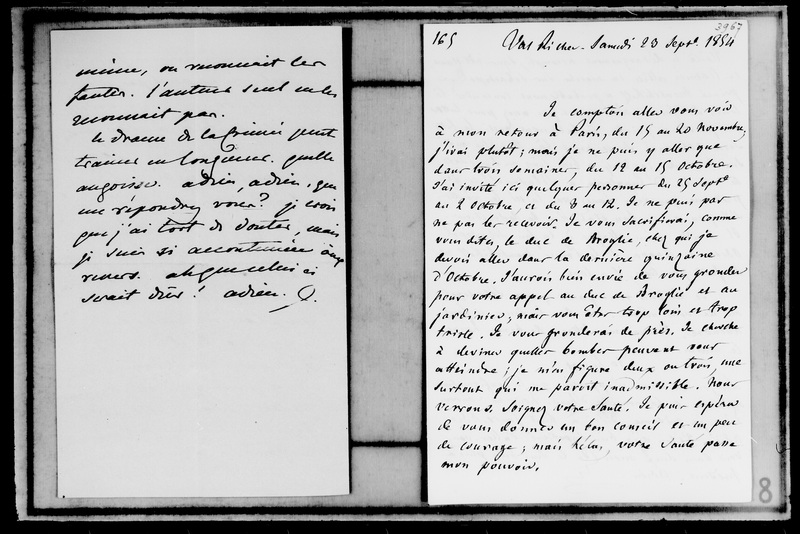 même, on reconnait les
fautes. l'auteur seul ne les
reconnait pas.
le drame de la Crimée peut
trainer en longueur. quelle
angoisse. adieu, adieu. que
me répondrez vous? je crois
que j'ai tort de douter, mais
je suis si accoutumée aux
revers. ah que celui ci
serait dur! adieu.
3967
165 Val Richer - Samedi 23 Septe 1854
Je comptois aller vous voir
à mon retour à Paris, du 15 au 20 Novembre,
j'irai plutôt; mais je ne puis y aller que
dans trois semaines, du 12 au 15 Octobre.
J'ai invité ici quelques personnes du 25 Septe
au 2 Octobre, et du 8 au 12. Je ne puis pas
ne pas les recevoir. Je vous sacrifierai, comme
vous dites, le duc de Broglie, chez qui je
devois aller dans la dernière quinzaine
d'Octobre. J'aurois bien envie de vous gronder
pour votre appel au duc de Broglie et au
jardinier; mais vous êtes trop loin et trop
triste. Je vous gronderai de près. Je cherche
à deviner quelles bombes peuvent vous
atteindre; je m'en figure deux ou trois, une
surtout qui me paroit inadmissible. Nous
verrons. Soignez votre santé. Je puis espérer
de vous donner un bon conseil et un peu
de courage; mais hélas, votre santé passe
mon pouvoir.
8